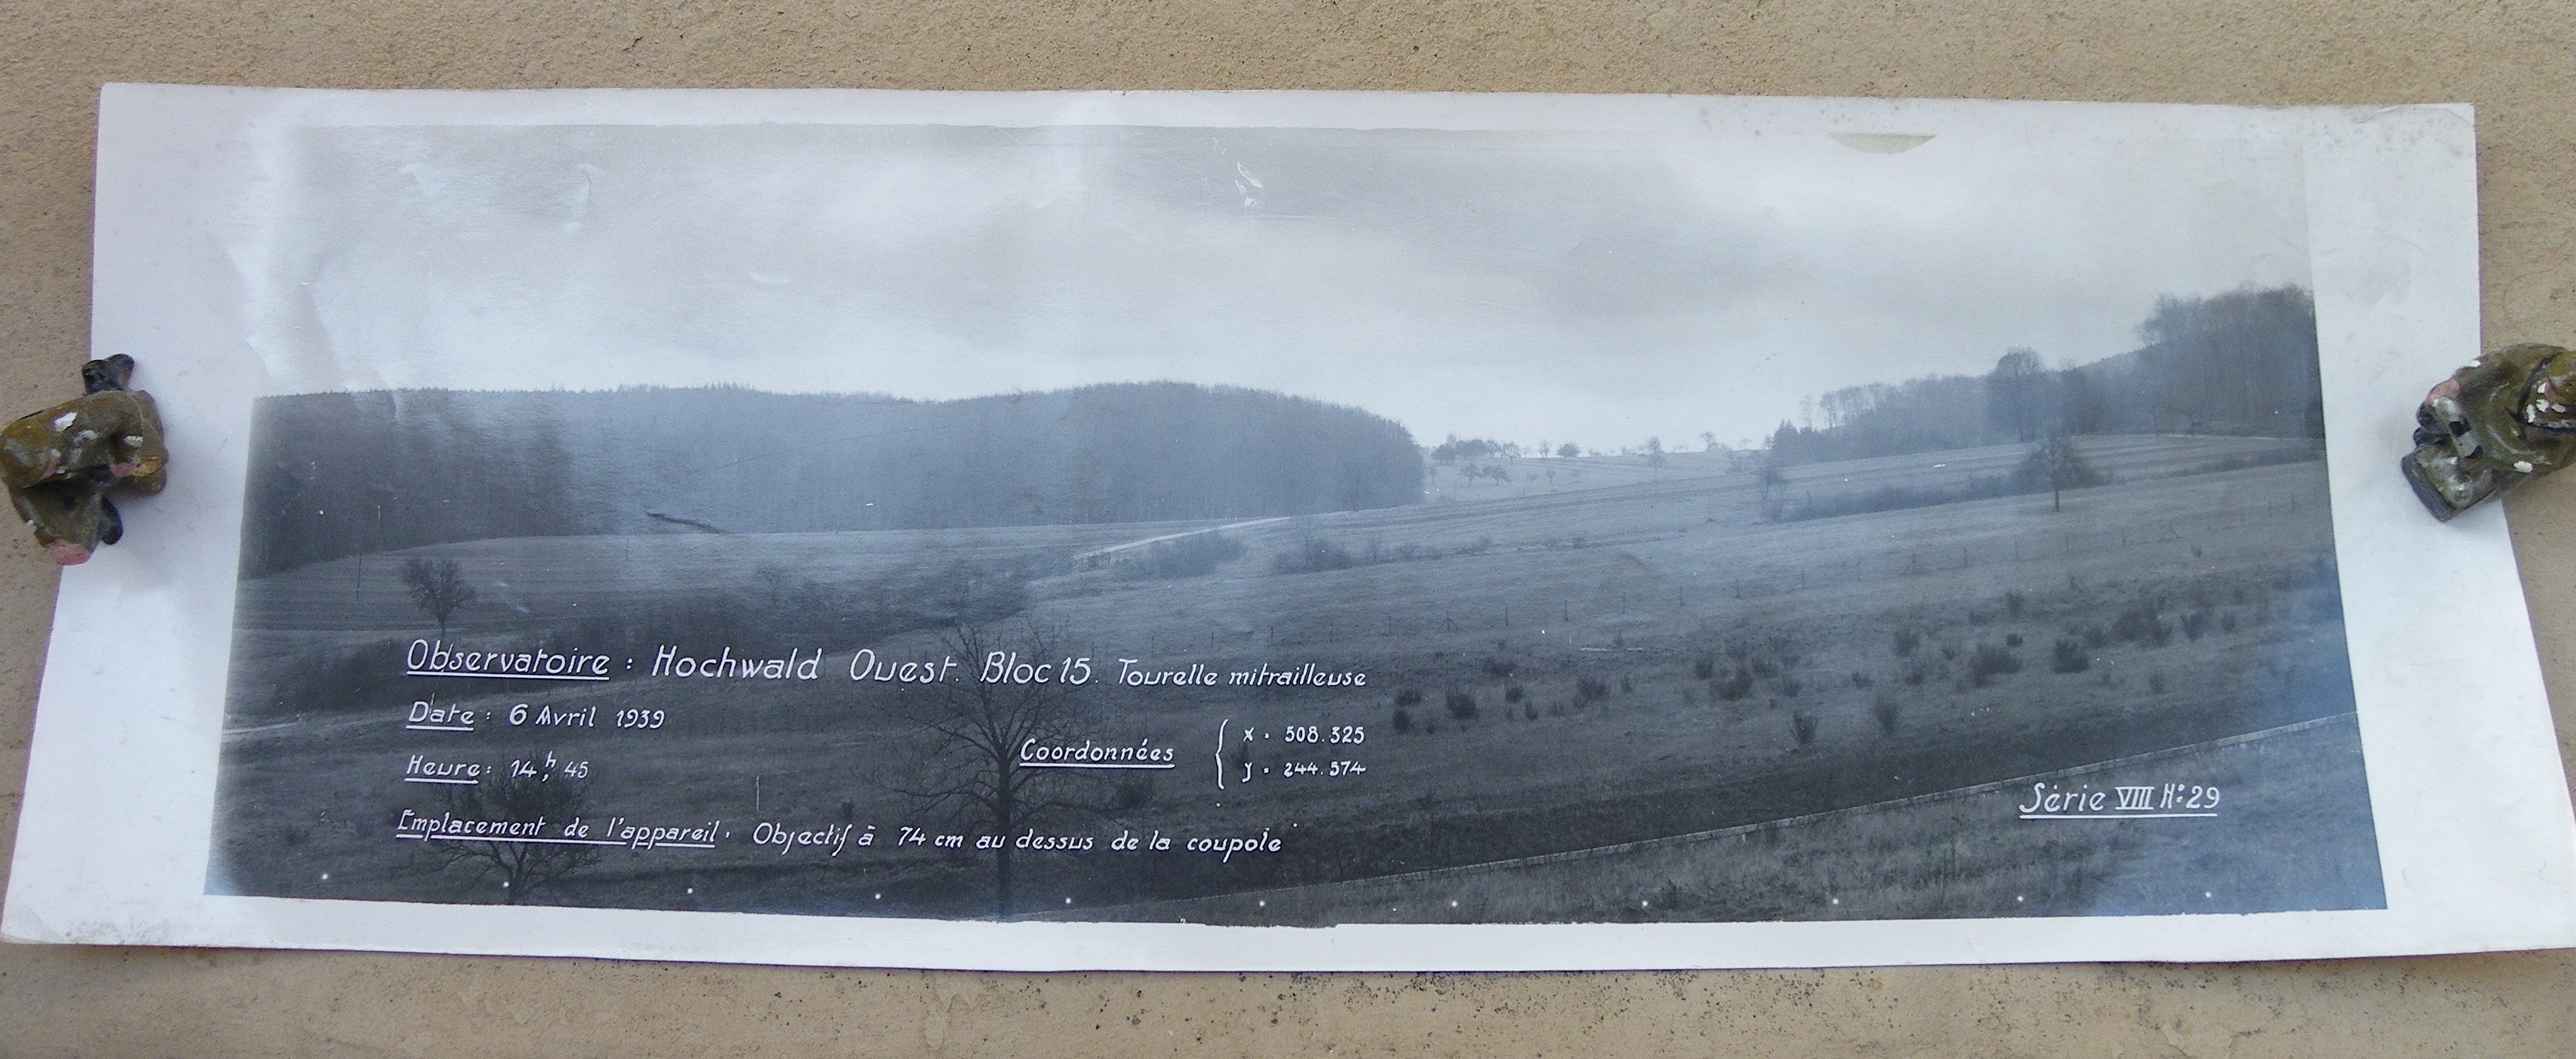 Observatoire : Hochwald Ouest. Bloc 15. Tourelle mitrailleuse
Date : 6 Avril 1939
Heure : 14h, 45
Coordonnées { x = 508.325
y = 244.574
Emplacement de l'appareil : Objectif à 74 cm au dessus de la coupole
Série VIII N° 29